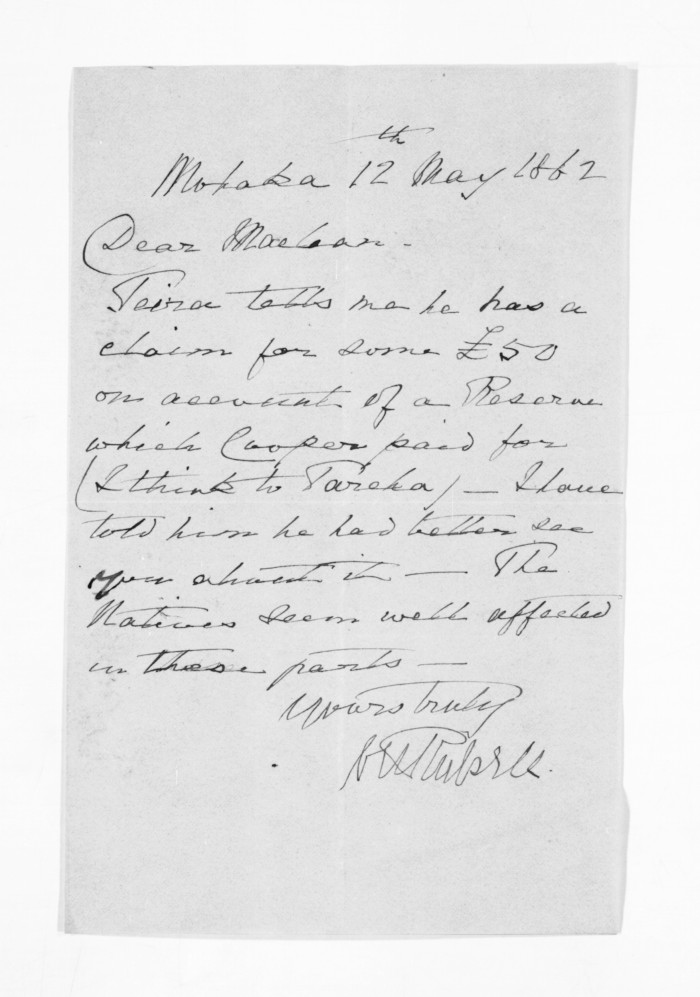 Mohaka 12th May 1862
Dear Maclean.
Teira tells me he has a
claim for some £50
on account of a Reserve
which Cooper paid for
(I think to Tareha) — I have
told him he had better see
you about it — The
Natives seem well affected
in these parts —
Yours truly
Russell.